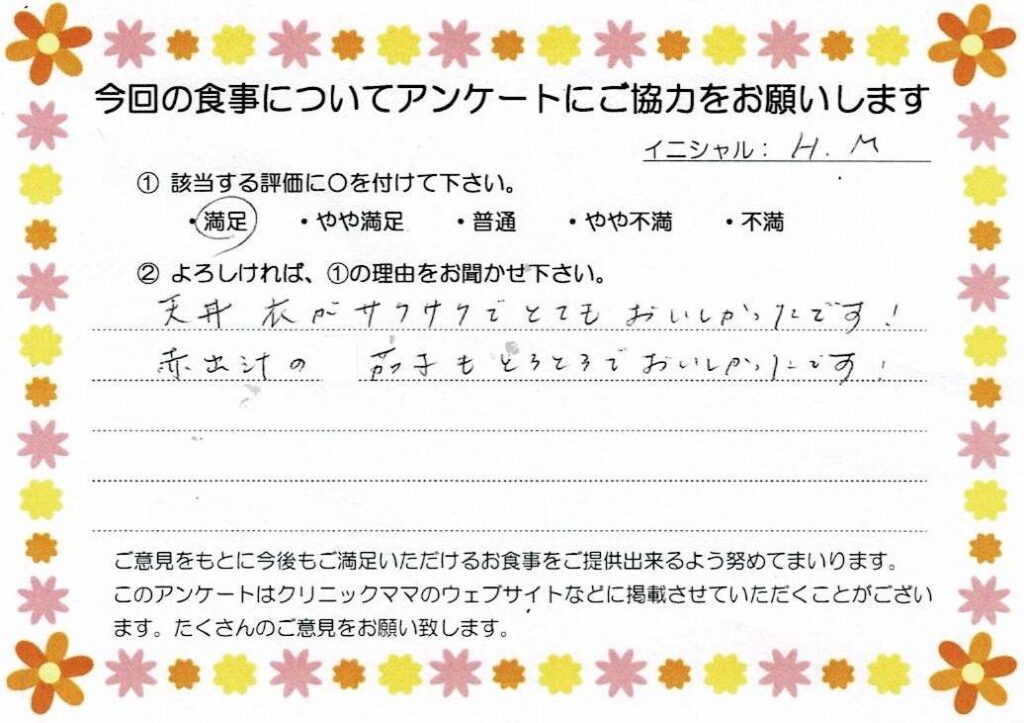 今回の食事についてアンケートにご協力をお願いします
イニシャル： H. M
① 該当する評価に〇を付けて下さい。
・満足 ・やや満足 ・普通 ・やや不満 ・不満
② よろしければ、①の理由をお聞かせ下さい。
天丼 衣がサクサクでとてもおいしかったです！
赤出汁の 茄子もとろとろでおいしかったです！
ご意見をもとに今後もご満足いただけるお食事をご提供出来るよう努めてまいります。
このアンケートはクリニックママのウェブサイトなどに掲載させていただくことがござい
ます。たくさんのご意見をお願い致します。